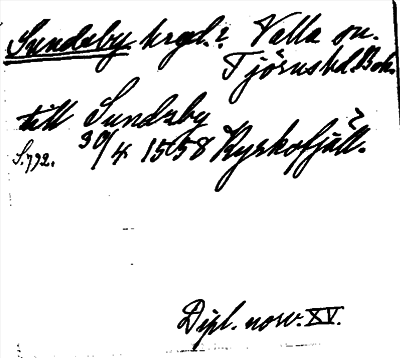 Sundsby. hrgd.? Valla sn.
Tjörns hd. Boh.
till Sundsby
S. 772. 30/4 1558 Kyrkofjäll.
Dipl. norv. XV.